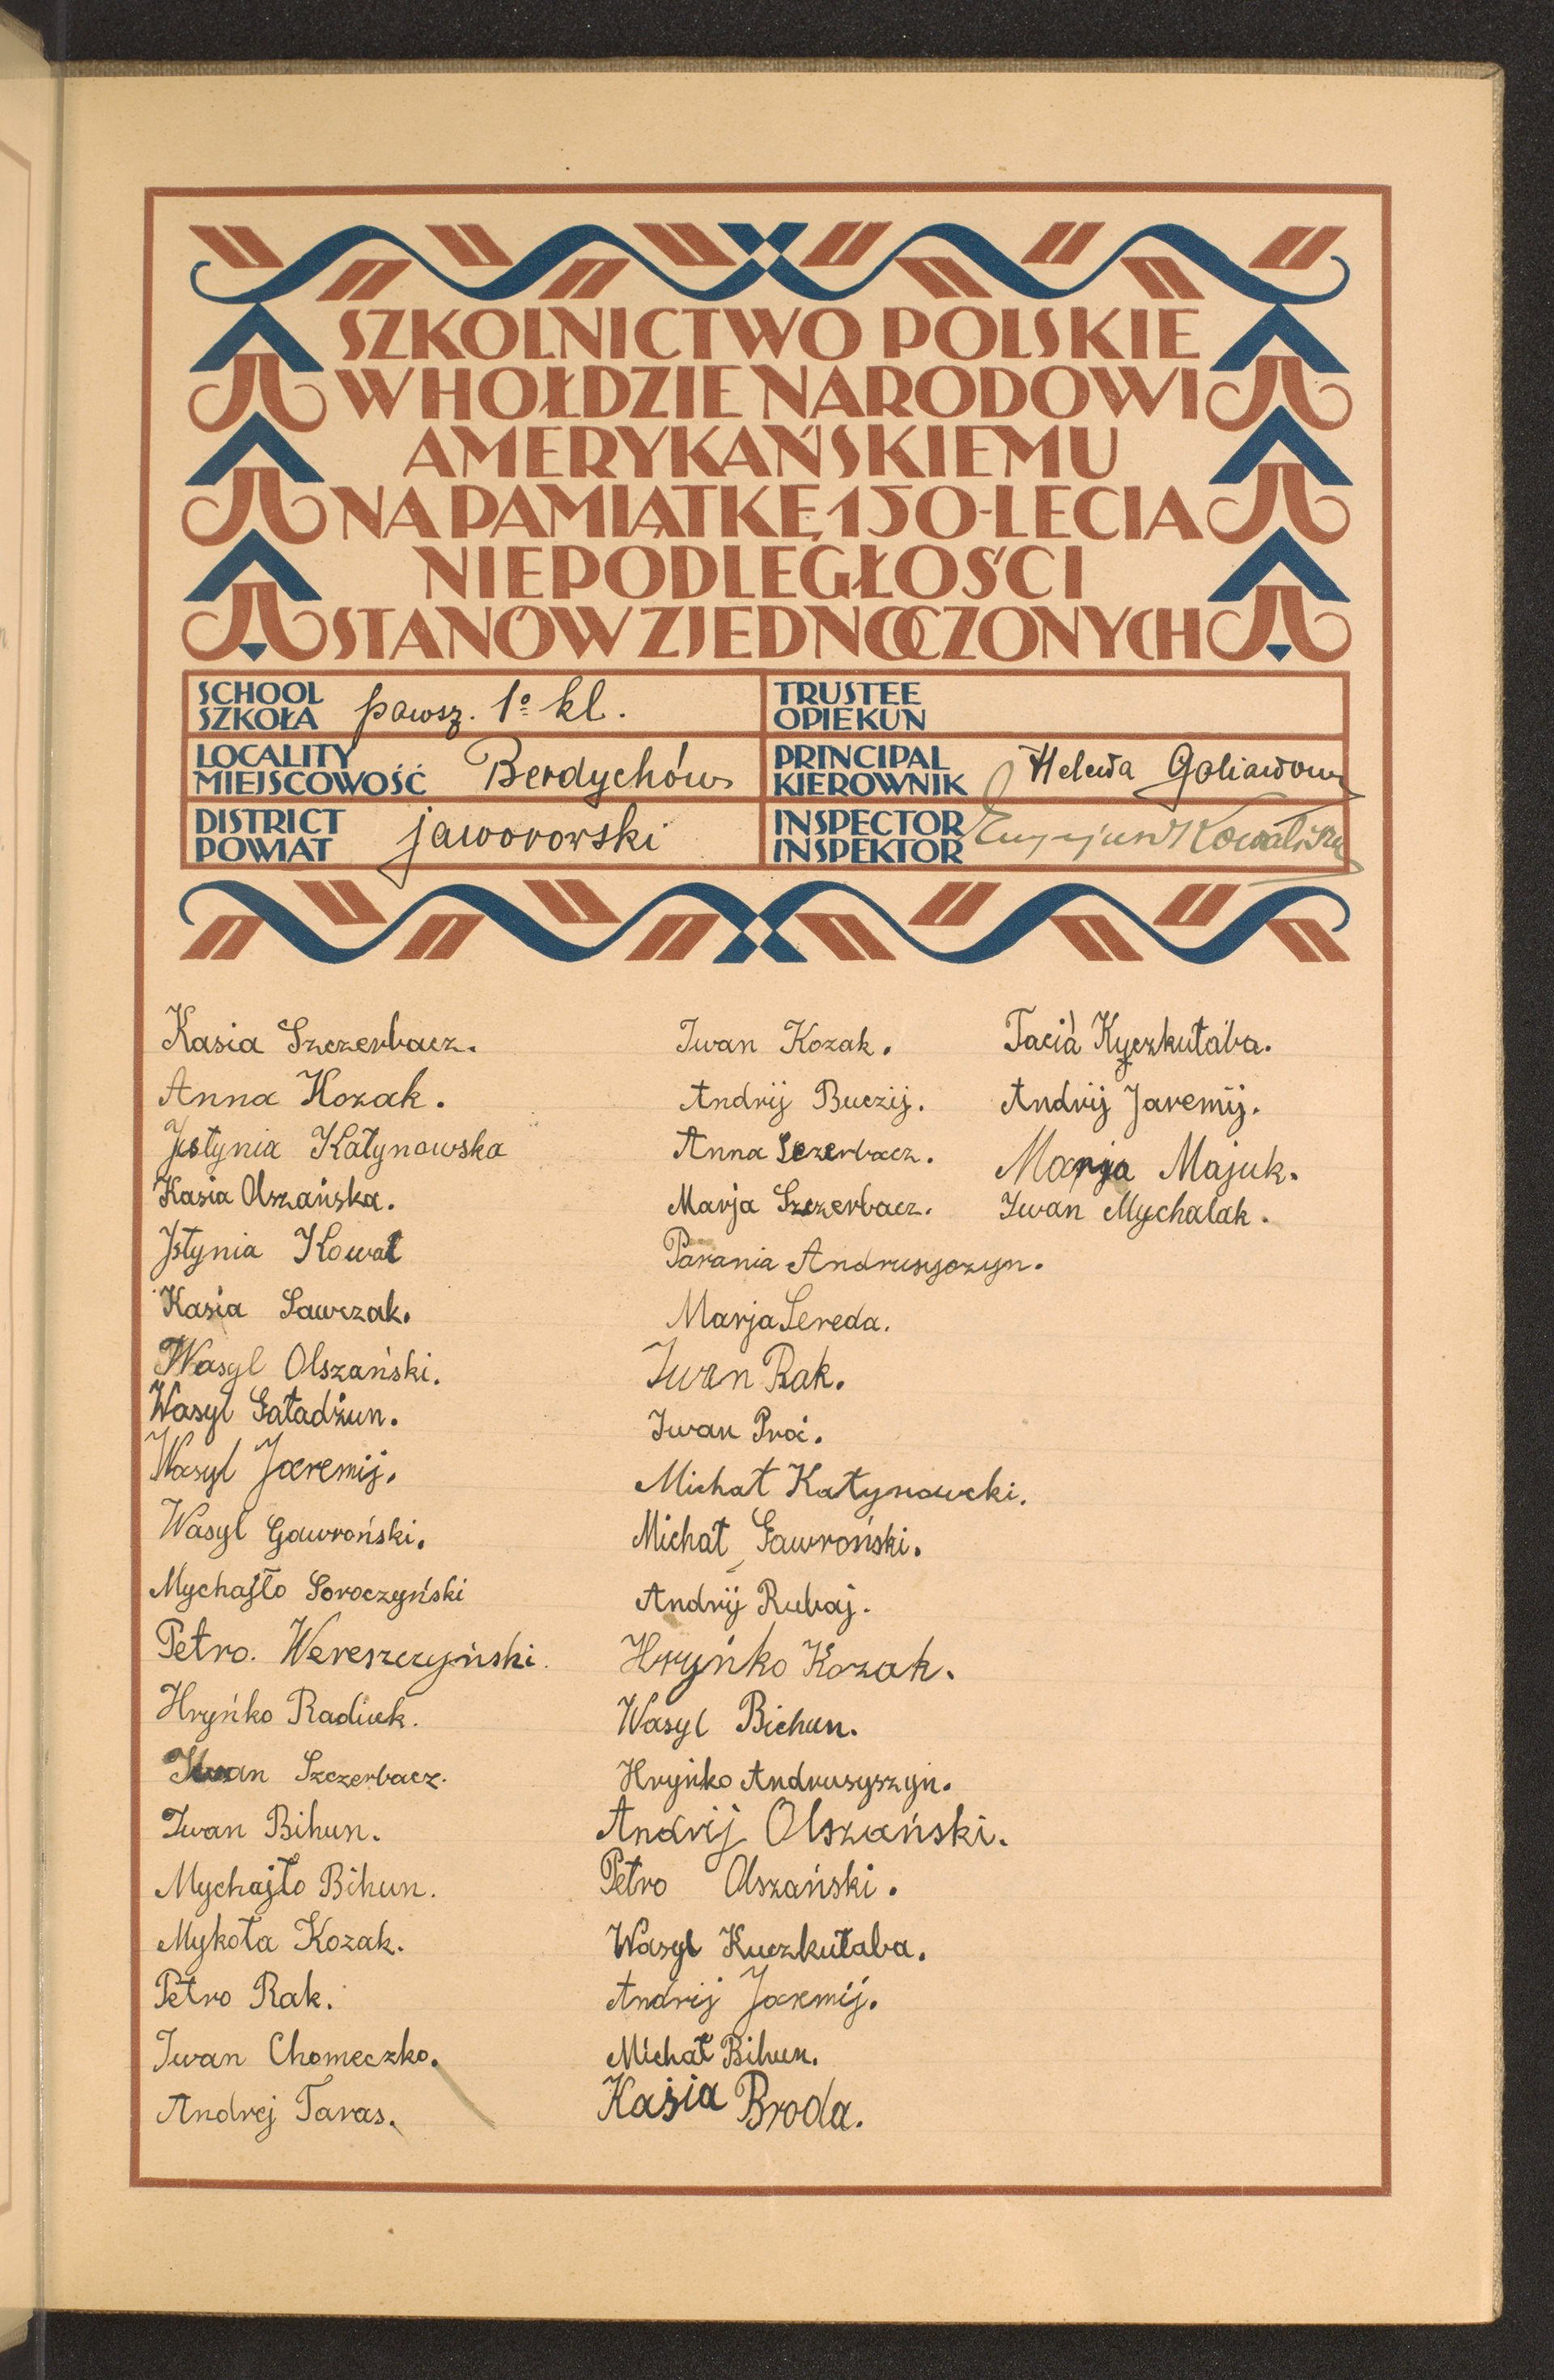 SZKOLNICTWO POLSKIE
W HOŁDZIE NARODOWI
AMERYKAŃSKIEMU
NA PAMIĄTKĘ 150-LECIA
NIEPODLEGŁOŚCI
STANÓW ZJEDNOCZONYCH
SCHOOL
SZKOŁA powsz. 1º kl.
TRUSTEE
OPIEKUN
LOCALITY
MIEJSCOWOŚĆ Berdychów
PRINCIPAL
KIEROWNIK Helena
DISTRICT
POWIAT jaworowski
INSPECTOR
INSPEKTOR
Kasia Szczerbacz.
Anna Kozak.
Jestynia Kałynowska
Kasia Olszańska.
Jstynia Kowal
Kasia Sawczak.
Wasyl Olszański.
Wasyl Gaładżun.
Wasyl Jaremij.
Wasyl Gawroński.
Mychajło Soroczyński
Petro. Wereszczyński.
Hryńko Radiuk.
Iwan Szczerbacz.
Iwan Bihun.
Mychajło Bihun.
Mykoła Kozak.
Petro Rak.
Iwan Chomeczko.
Andrej Taras.
Iwan Kozak.
Andrij Buczij.
Anna Szczerbacz.
Marja Szczerbacz.
Parania Andrusyczyn.
Marja Sereda.
Iwan Rak.
Iwan Proć.
Michał Kałynowcki.
Michał Gawroński.
Andrij Rubaj.
Hryńko Kozak.
Wasyl Bichun.
Hryńko Andrusyszyn.
Andrij Olszański.
Petro Olszański.
Wasyl Kuczkułaba.
Andrij Jaremij.
Michał Bihun.
Kasia Broda.
Tacia Kyczkułaba.
Andrij Jaremij.
Marja Majuk.
Iwan Mychalak.